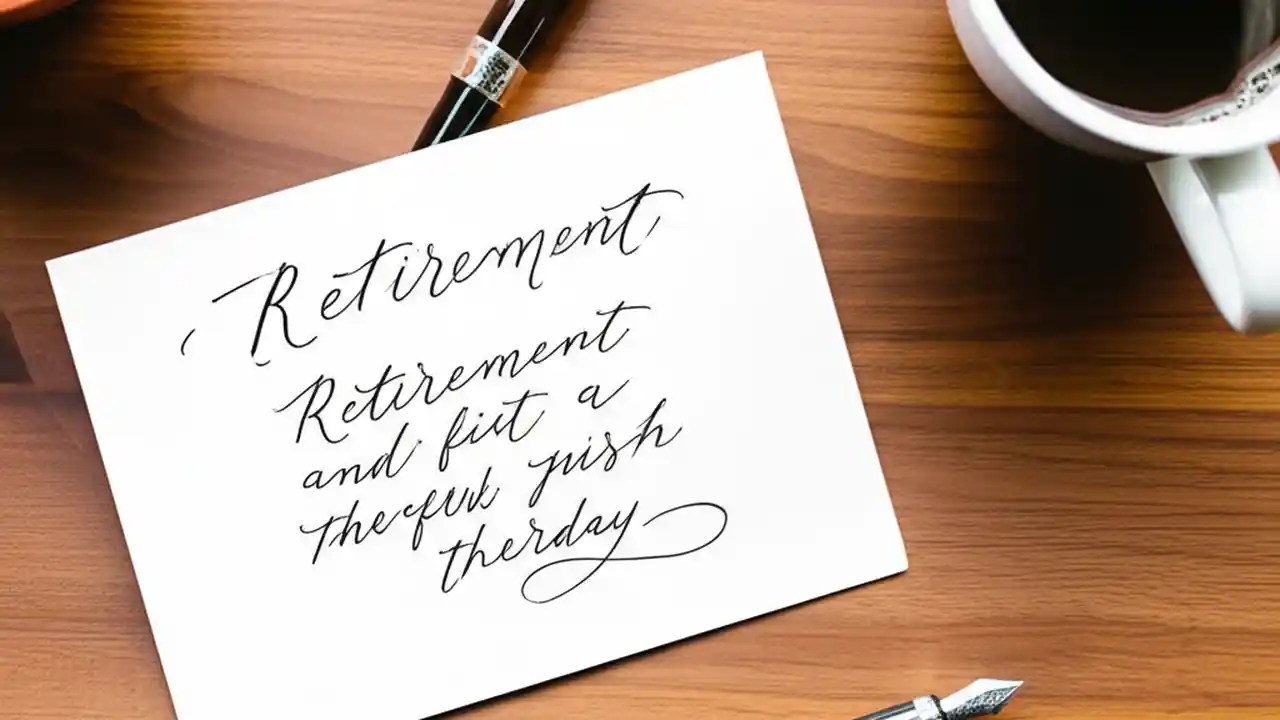 Retirement
Retirement
and fist a
thefuk yish
therday